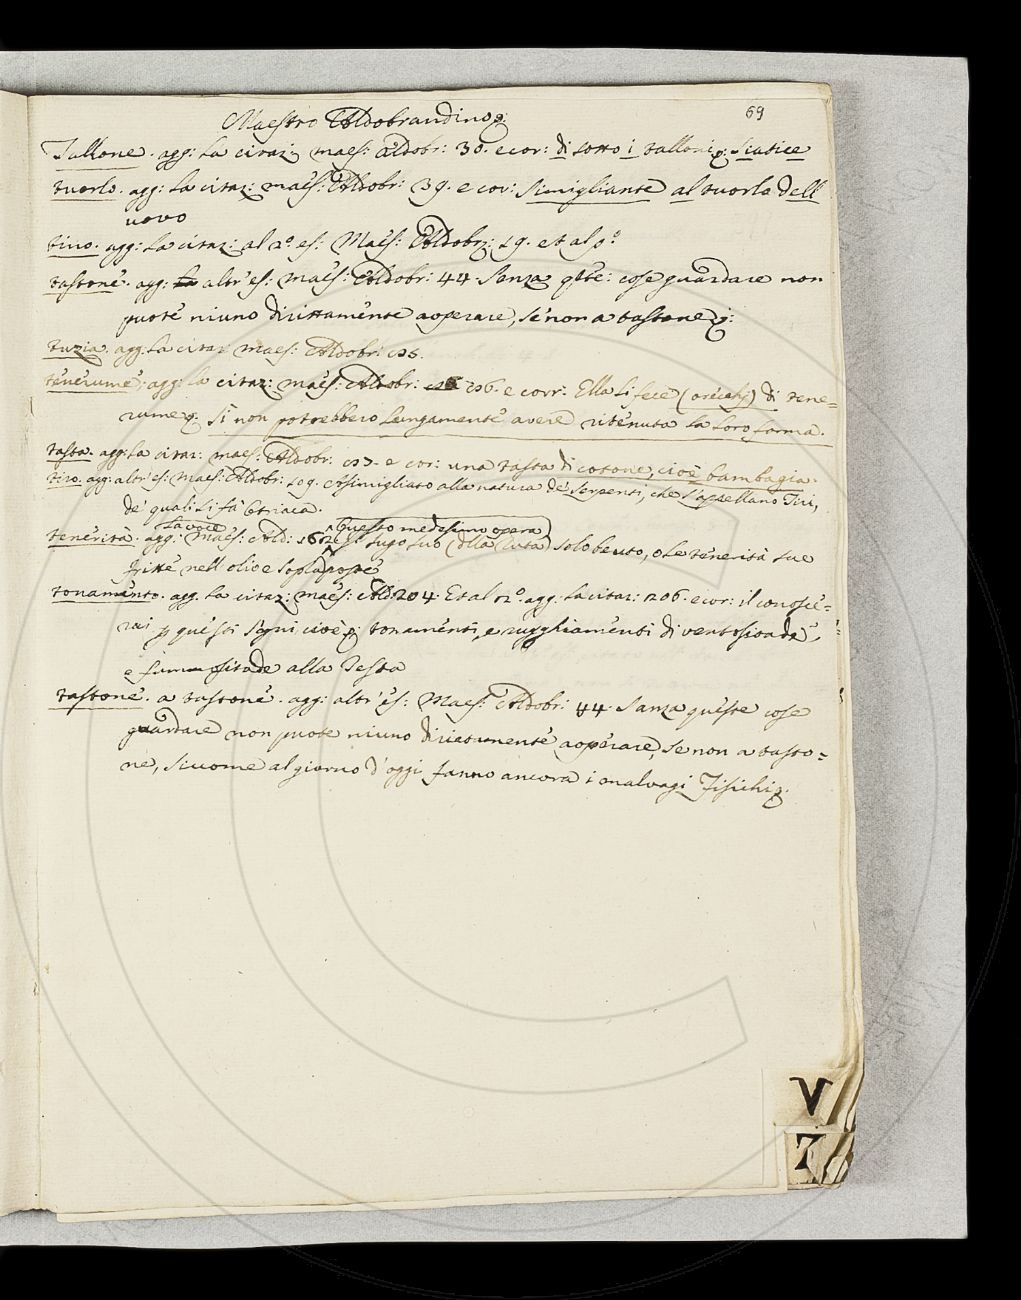 69
Maestro Aldobrandino
Tallone. agg: la citaz: maes: Aldobr: 30. e cor: di sotto i talloni Sciatice
tuorlo. agg: la citaz: maes: Aldobr: 39. e cor: Simigliante al tuorlo dell
uovo
tino. agg: la citaz: al 2º es: Maes: Aldobr: 19. et al 5º
tastone. agg: altr es: maes: Aldobr: 44 Sanza qste: cose guardare non
puote niuno dirittamente aoperare, se non a tastone
tuzia. agg: la citaz: maes: Aldobr:
tenerume: agg: la citaz: maes: Aldobr: 126. e corr: Ella li fece (orecchj) di tene=
rume Si non potrebbero lungamente avere ritenuta la loro forma.
tasta. agg: la citaz: maes: Aldobr: e cor: una tasta di cotone, cioè bambagia.
tiro. agg: altr'es: Maes: Aldobr: 109. è simigliato alla natura de' Serpenti, che s'appellano Tiri,
de' quali si fà Otriaca.
la voce Questo medesimo opera
tenerità. agg: Maes: Ald: 162 il sugo suo (dlla Ruta) solo beuto, o le tenerità sue
fritte nell olio e sopla poste
tonamento. agg. la citaz: maes: Aldo 204. Et al 12º. agg. la citaz: 206. e cor: il conosce=
rai p questi segni cioè tonamenti, e rugghiamenti di ventosidade,
e fummositade alla Testa
tastone. a tastone. agg: altr'es: Maes: Aldobr: 44. Sanza queste cose
guardare non puote niuno dirittamente aoperare, se non a tasto=
ne, siccome al giorno d'oggi fanno ancora i malvagi Fisichi
V
T